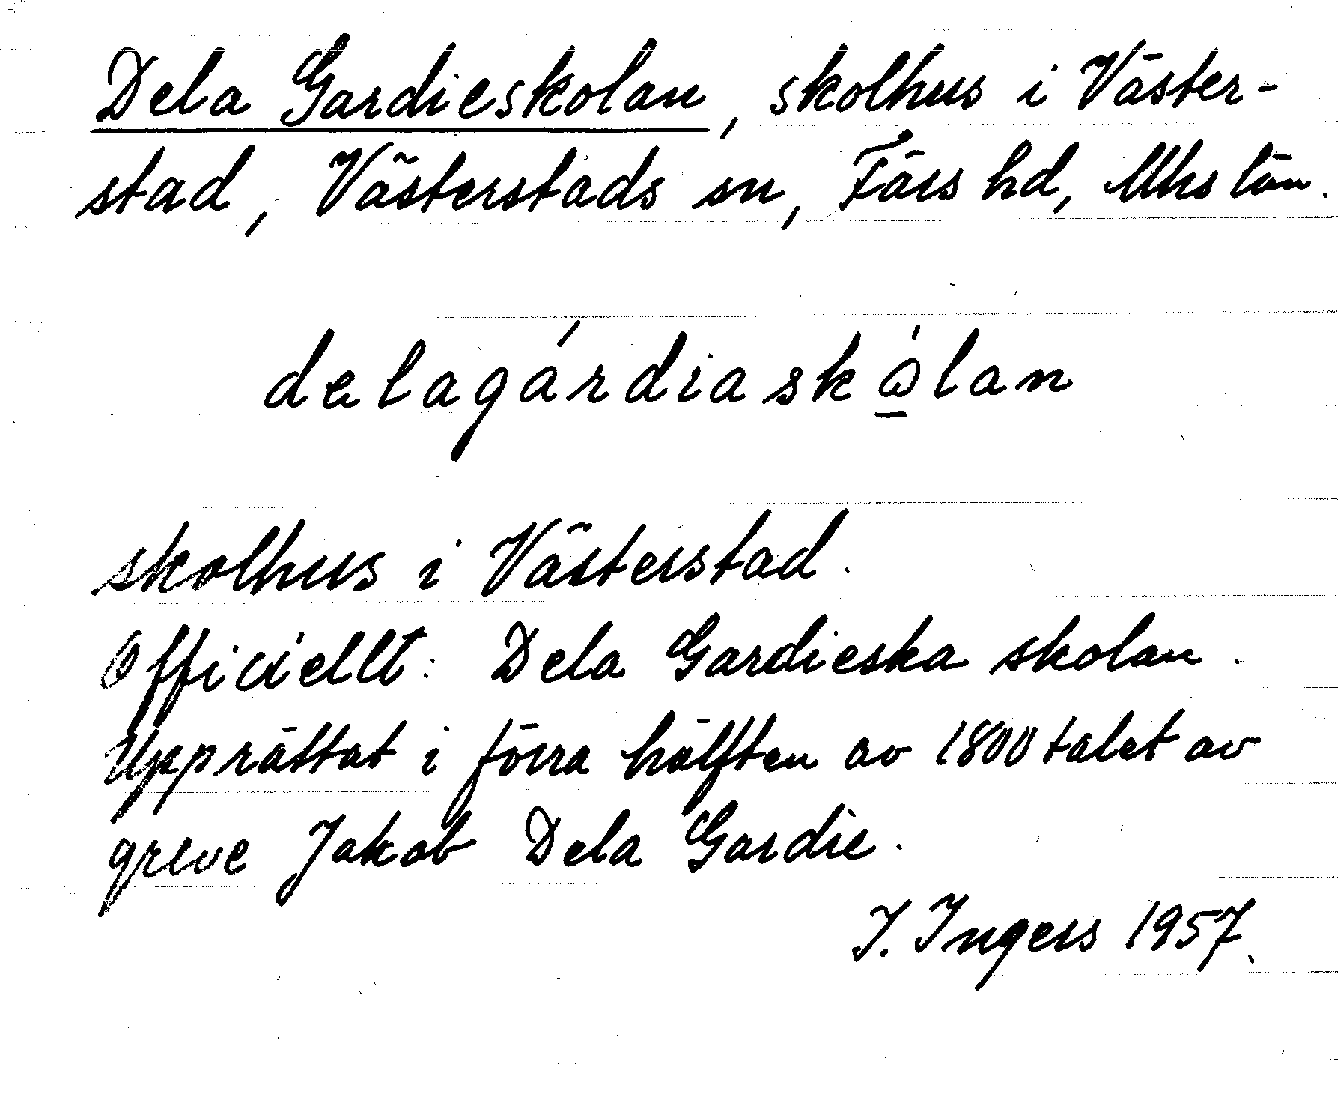 Dela Gardieskolan, skolhus i Väster-
stad, Västerstads sn, Färs hd, Mhs län.
delagárdiaskǫ́lan
skolhus i Västerstad.
Officiellt: Dela Gardieska skolan.
Upprättat i förra hälften av 1800talet av
greve Jakob Dela Gardie.
I. Ingers 1957.